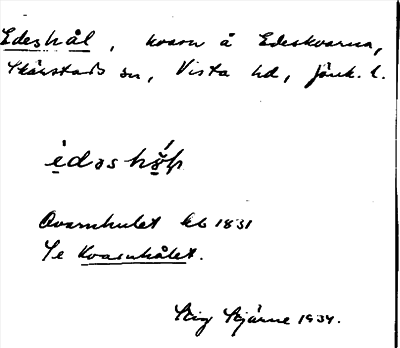 Edeshål, kvarn å Edeskvarna,
Skärstads sn, Vista hd, Jönk. l.
Qvarnhulet kb 1831
Se Kvarnhålet.
Stig Stjärne 1934.